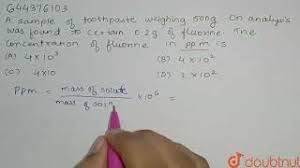 644376103
A sample of toothpaste weighing 500g on analysis
was found to certain 0.2g of fluorine. The
concentration of fluorine in ppm is
(A) 4 × 10³ (B) 4 × 10²
(C) 4 × 10 (D) 2 × 10²
PPm = mass of solute / mass of soln × 10⁶ =
doubtnut